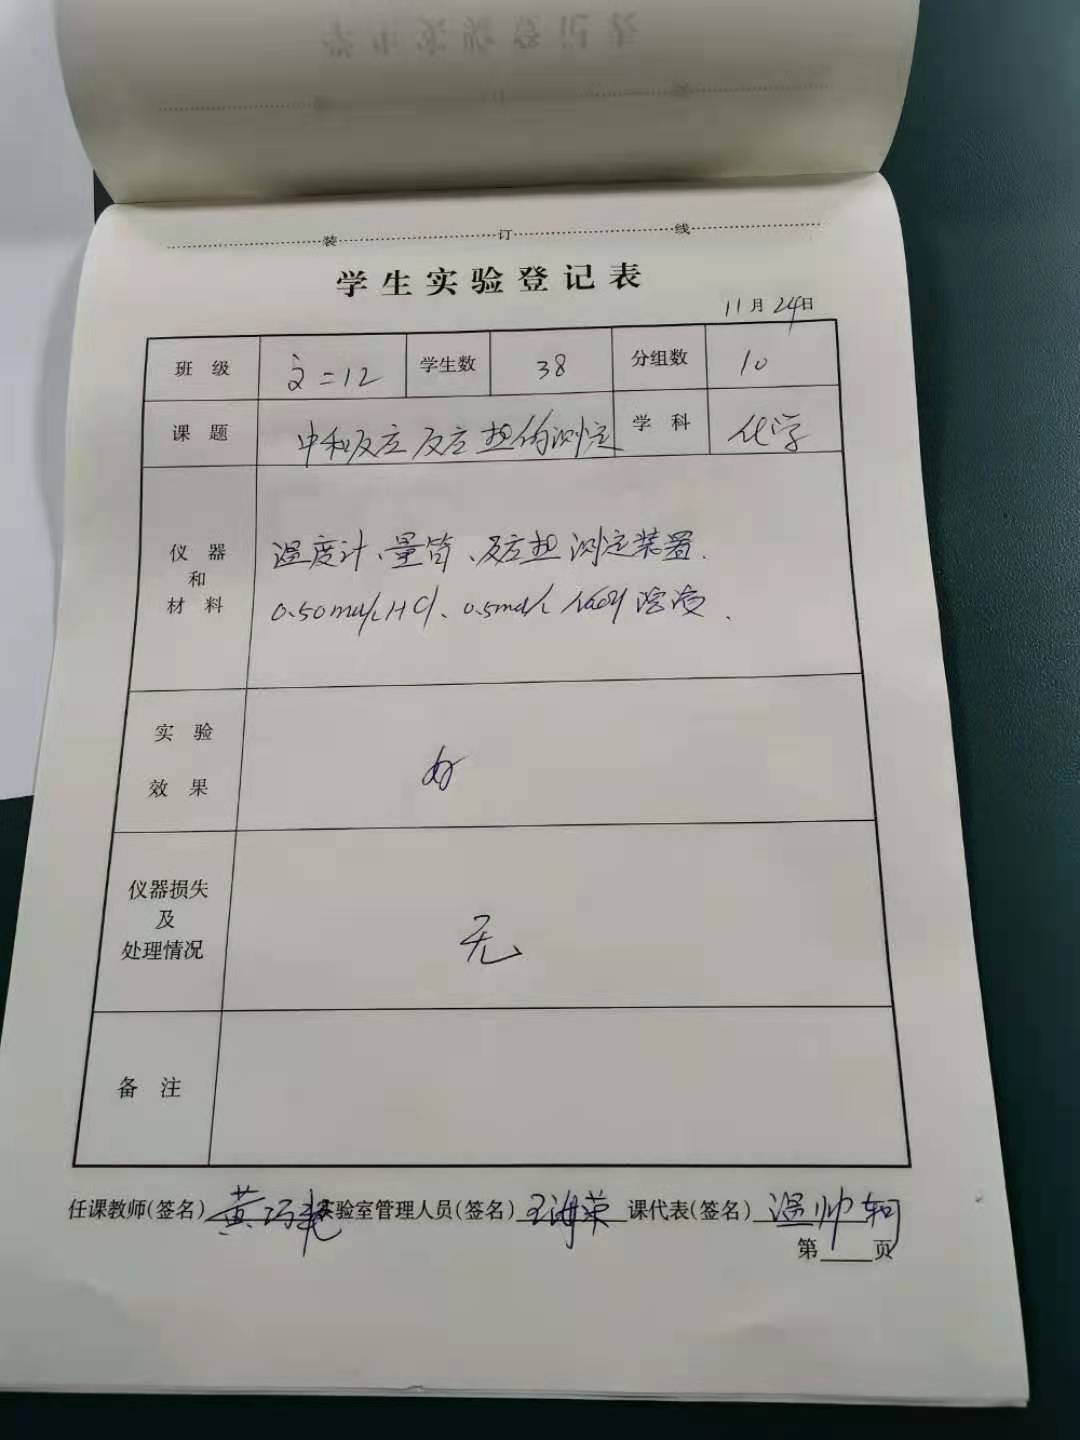 装 订 线
学生实验登记表
11月24日
班 级 高二12 学生数 38 分组数 10
课 题 中和反应反应热的测定 学 科 化学
仪 器 和 材 料
温度计、量筒、反应热测定装置、
0.50mol/L HCl、0.5mol/L NaOH 溶液、
实 验 效 果 好
仪器损失 及 处理情况 无
备 注
任课教师(签名) 黄巧 实验室管理人员(签名) 王海荣 课代表(签名) 温帅轲
第 页